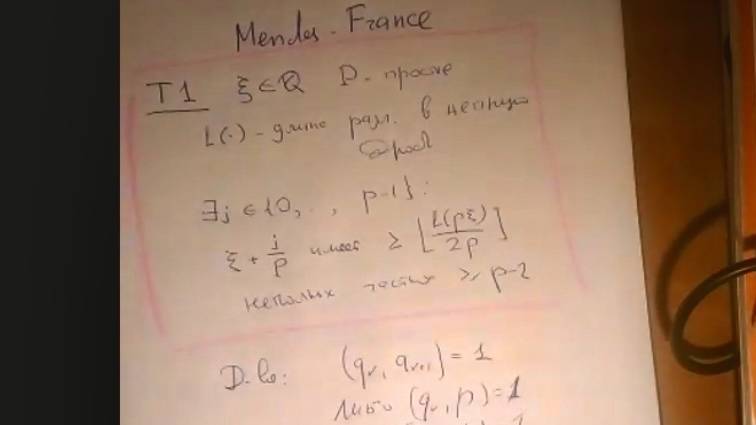 Mendes-France
T1 ξ ∈ ℚ p - простое
L(·) - длина разл. в цепную
дробь
∃j ∈ {0, .., p-1}:
ξ + j/p имеет ≥ [L(pξ)/2p]
неполных частных ≥ p-2
Д-во: (qν, qν+1) = 1
либо (qν, p) = 1